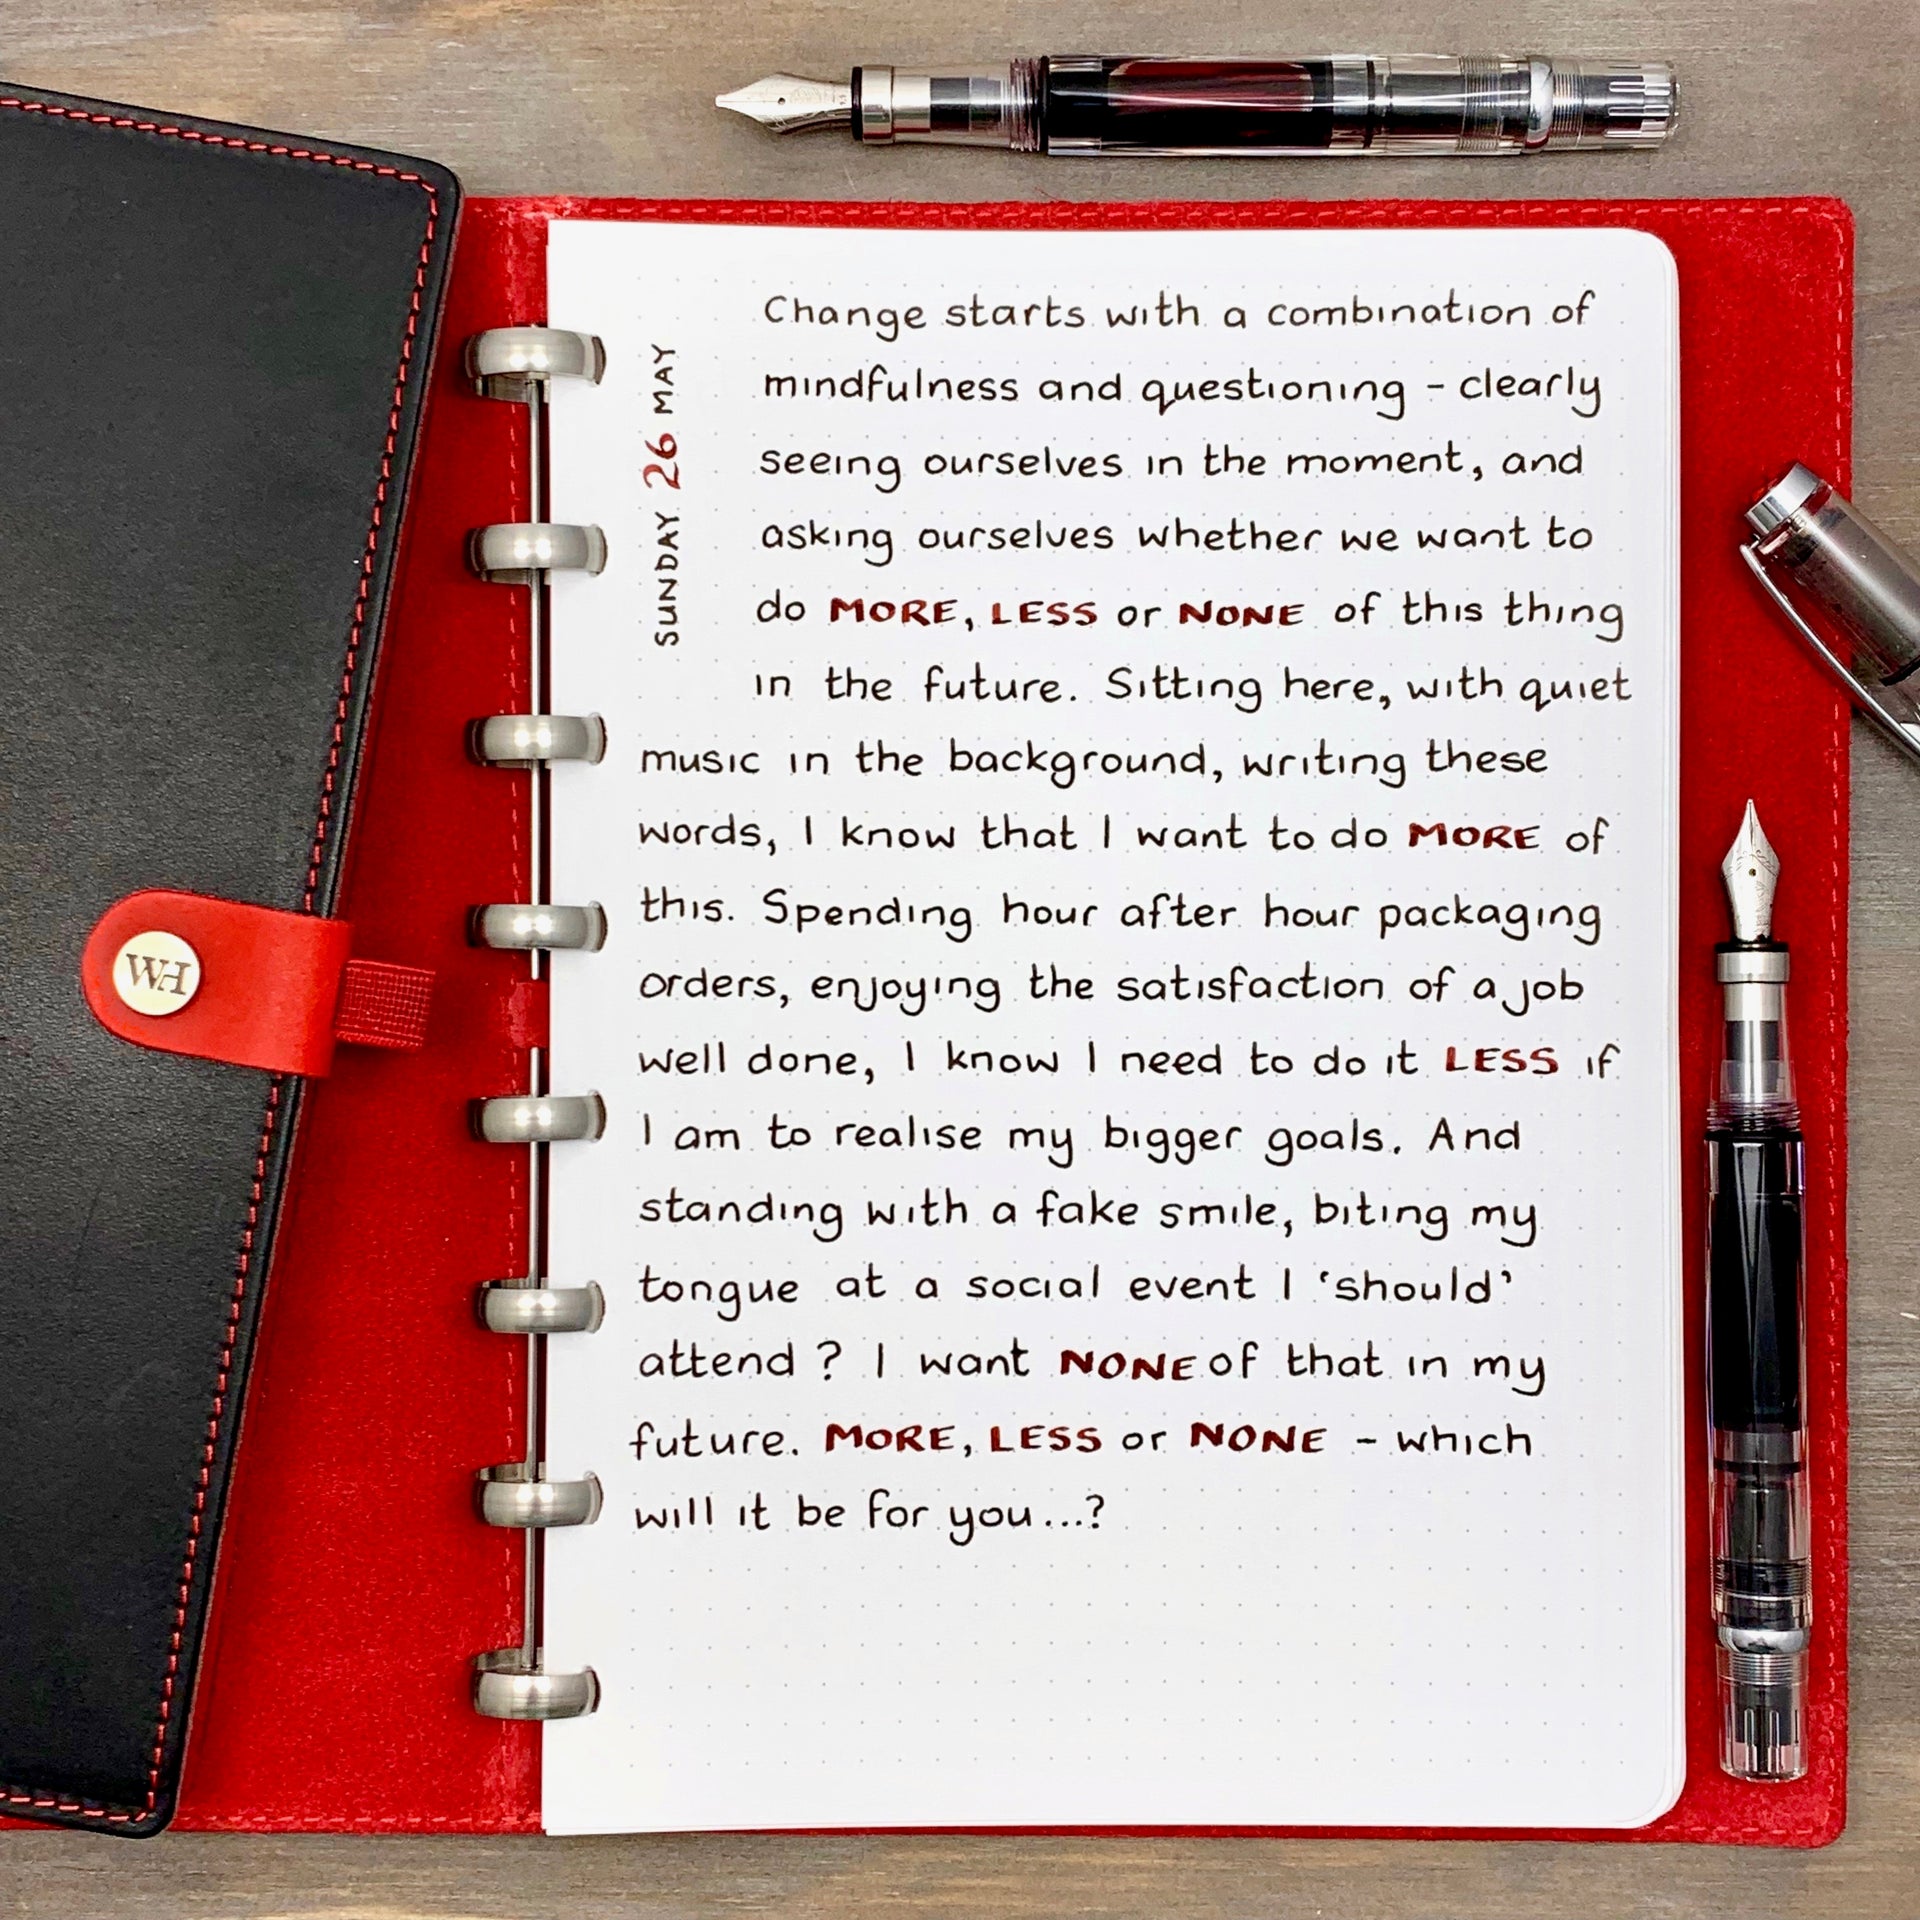 SUNDAY 26 MAY
Change starts with a combination of
mindfulness and questioning - clearly
seeing ourselves in the moment, and
asking ourselves whether we want to
do MORE, LESS or NONE of this thing
in the future. Sitting here, with quiet
music in the background, writing these
words, I know that I want to do MORE of
this. Spending hour after hour packaging
orders, enjoying the satisfaction of a job
well done, I know I need to do it LESS if
I am to realise my bigger goals. And
standing with a fake smile, biting my
tongue at a social event I ‘should’
attend? I want NONE of that in my
future. MORE, LESS or NONE - which
will it be for you...?
WH